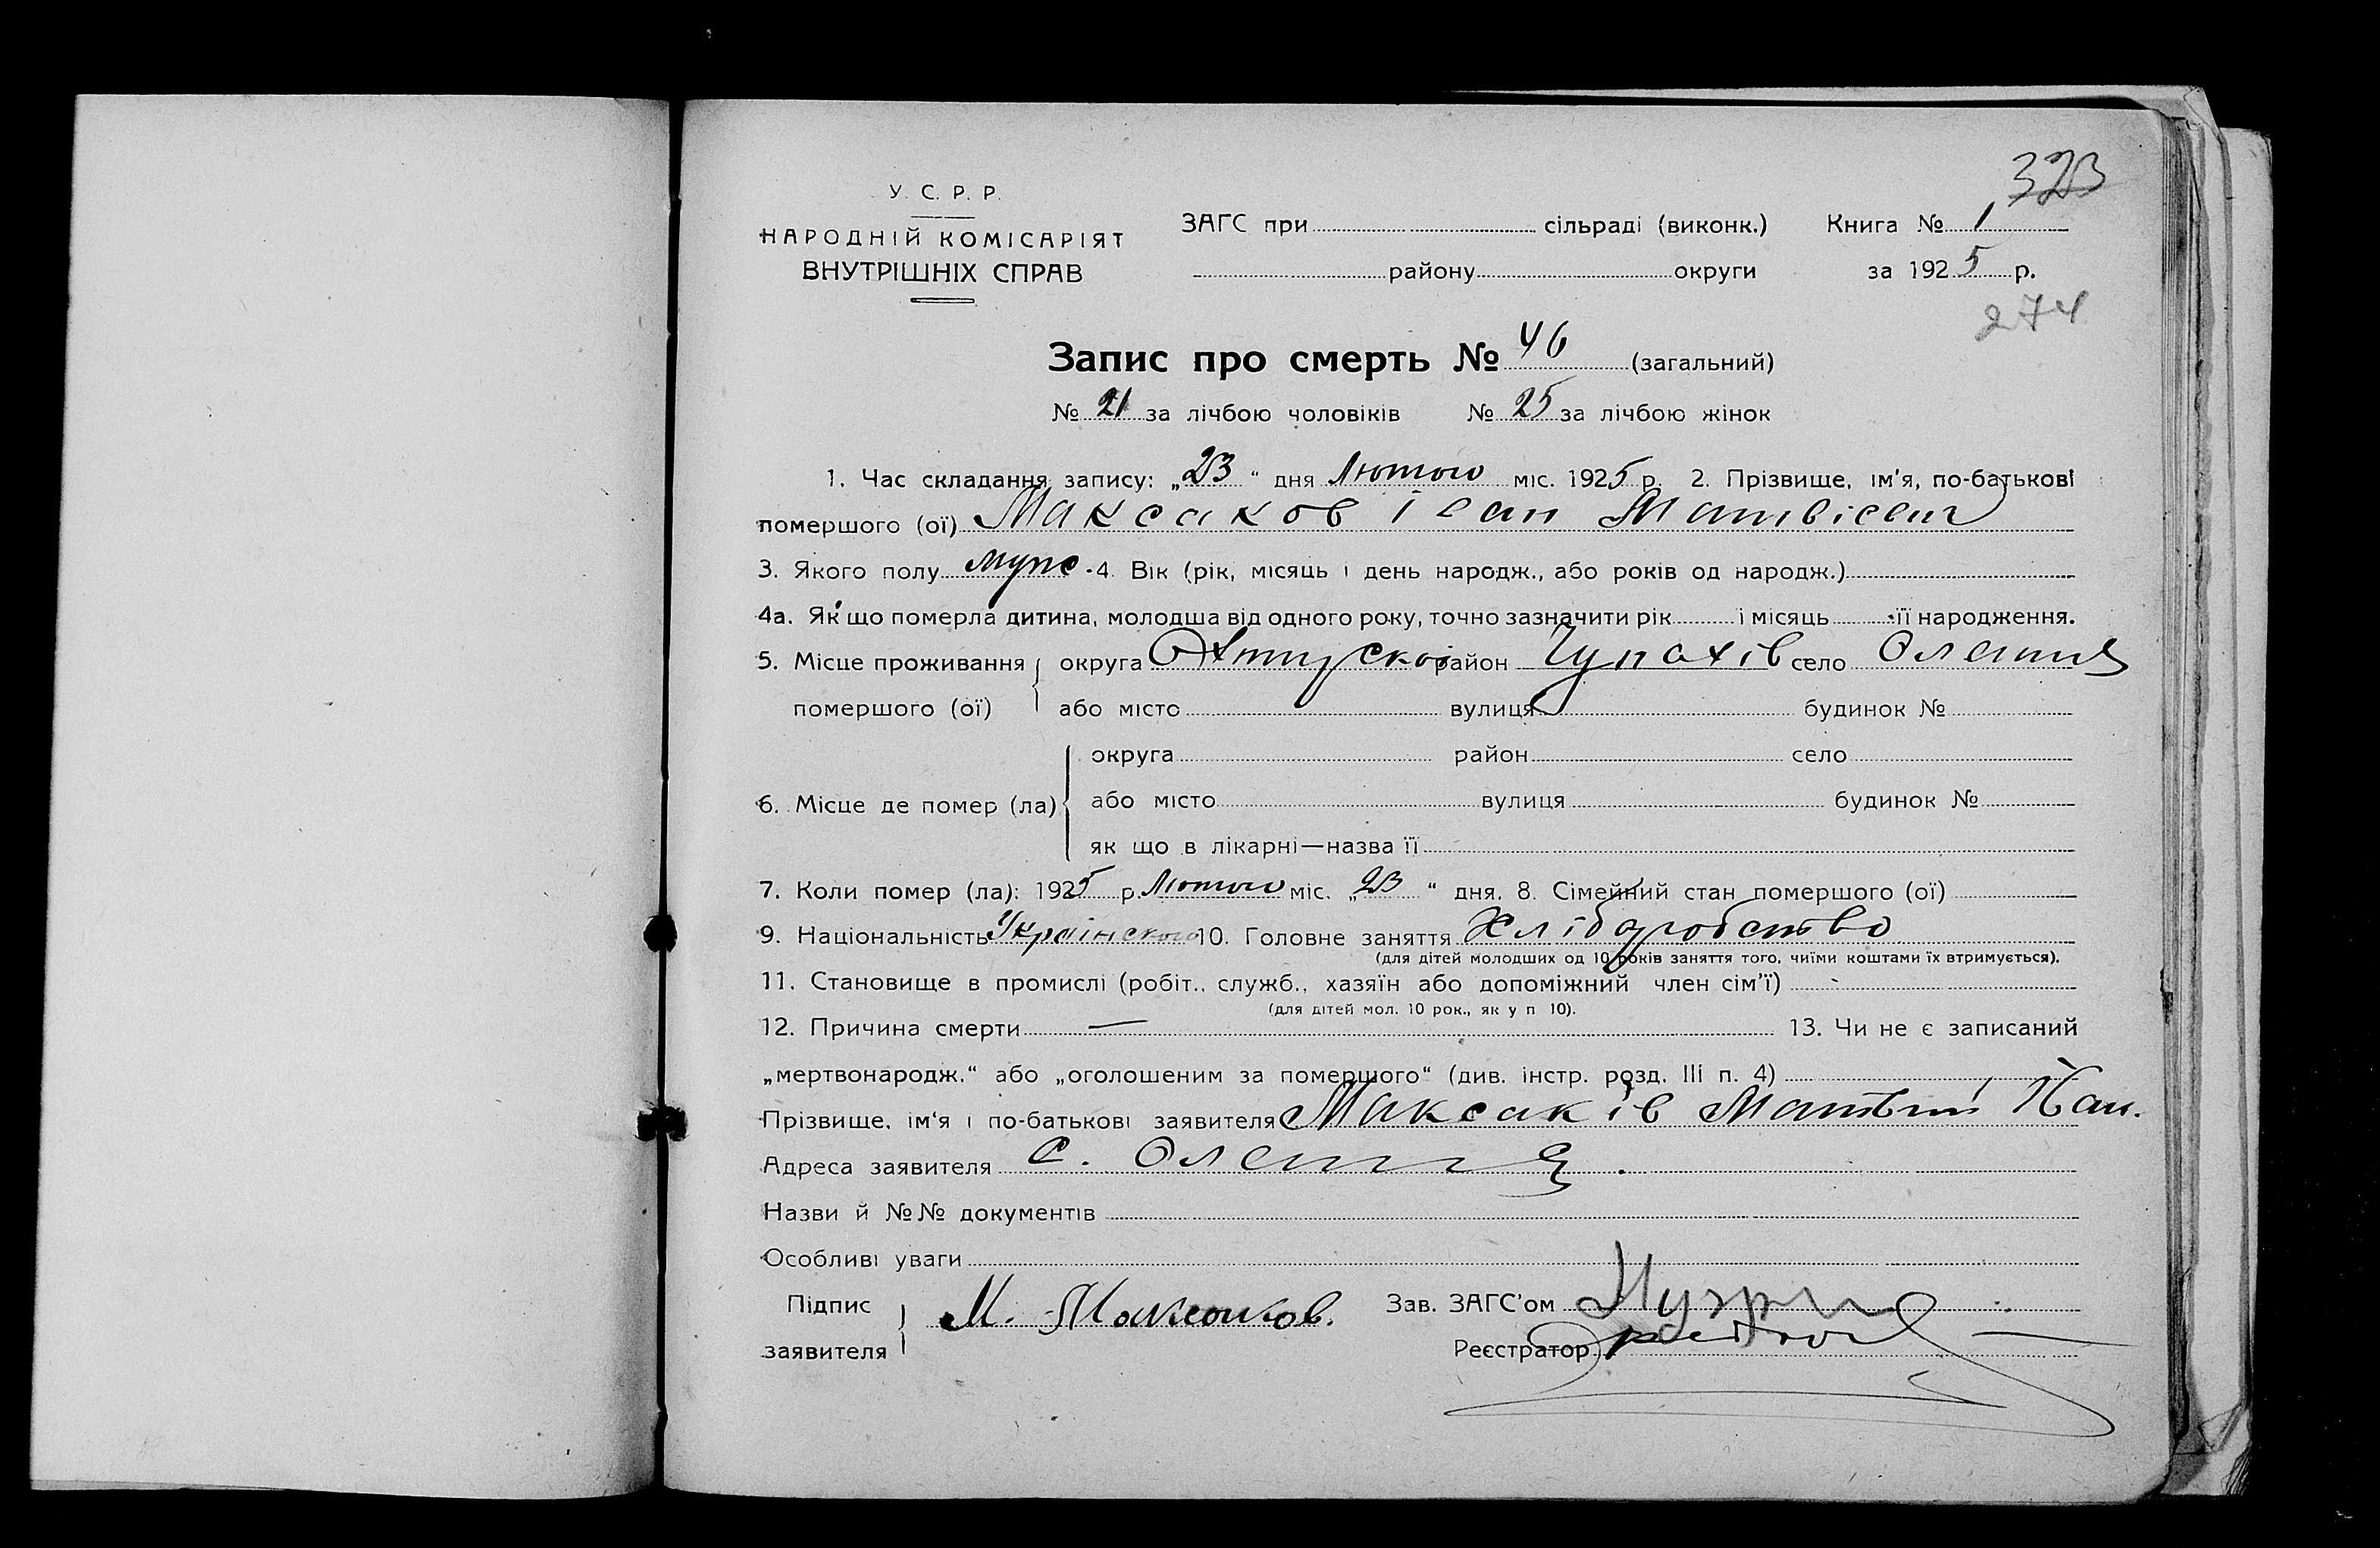 323
У. С. Р. Р.
НАРОДНІЙ КОМІСАРІЯТ
ВНУТРІШНІХ СПРАВ
ЗАГС при сільраді (виконк.) Книга № 1
району округи за 1925 р.
274
Запис про смерть № 46 (загальний)
№ 21 за лічбою чоловіків № 25 за лічбою жінок
1. Час складання запису: „23“ дня Лютого міс. 1925 р. 2. Прізвище, ім'я, по-батькові
помершого (ої) Максаков Іван Матвієвич
3. Якого полу муж. 4. Вік (рік, місяць і день народж., або років од народж.)
4а. Як що померла дитина, молодша від одного року, точно зазначити рік і місяць її народження.
5. Місце проживання округа район Чупахів село
помершого (ої) або місто вулиця будинок №
округа район село
6. Місце де помер (ла) або місто вулиця будинок №
як що в лікарні—назва її
7. Коли помер (ла): 1925 р. Лютого міс. „23“ дня. 8. Сімейний стан помершого (ої)
9. Національність Українского 10. Головне заняття Хліборобство
(для дітей молодших од 10 років заняття того, чиїми коштами їх втримується).
11. Становище в промислі (робіт., служб., хазяїн або допоміжний член сім'ї) -
(для дітей мол. 10 рок., як у п 10).
12. Причина смерти — 13. Чи не є записаний
„мертвонародж.“ або „оголошеним за помершого“ (див. інстр. розд. III п. 4)
Прізвище, ім'я і по-батькові заявителя Максаків Матвій
Адреса заявителя с.
Назви й №№ документів
Особливі уваги
Підпис М. Максаков. Зав. ЗАГС'ом
заявителя Реєстратор